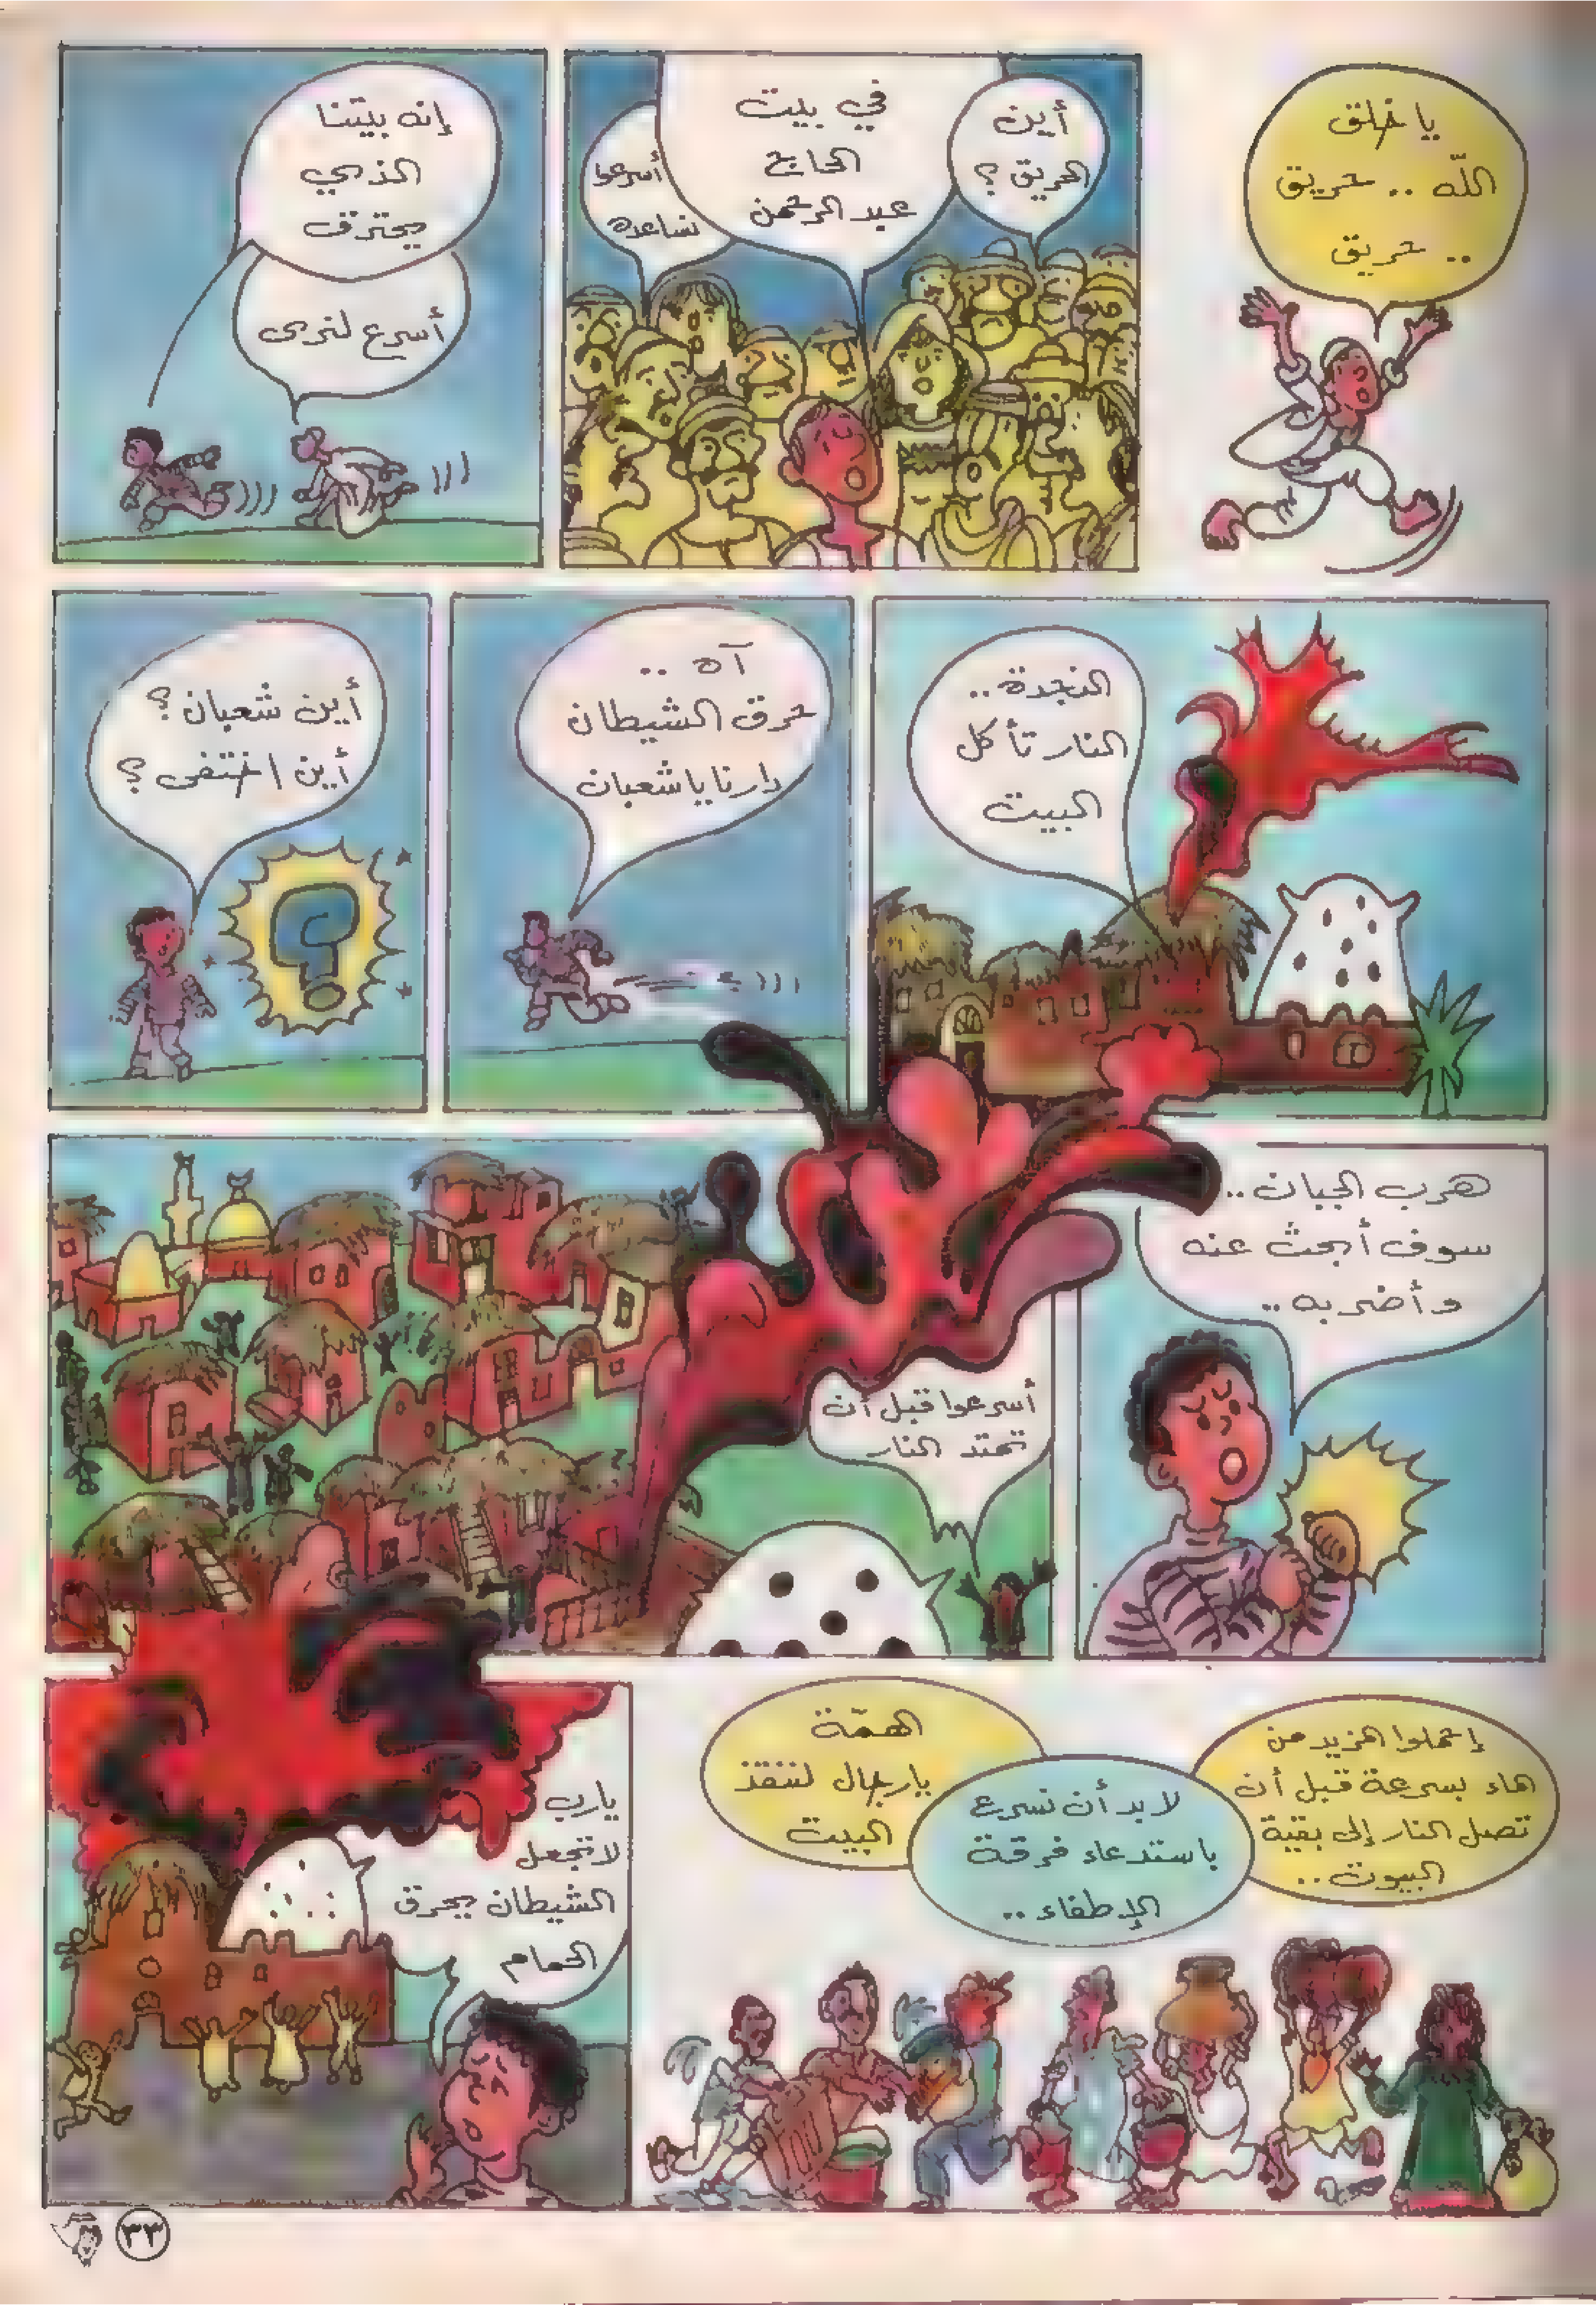 يا خلق
الله .. حريق
.. حريق
أين
الحريق؟
في بيت
الحاج
عبد الرحمن
أسرعوا
نساعده
إنه بيتنا
الذي
يحترق
أسرع لنرى
النجدة..
النار تأكل
البيت
آه ..
حرق الشيطان
دارنا يا شعبان
أين شعبان؟
أين اختفى؟
هرب الجبان..
سوف أبحث عنه
وأضربه..
أسرعوا قبل أن
تمتد النار
إحملوا المزيد من
الماء بسرعة قبل أن
تصل النار إلى بقية
البيوت..
لابد أن نسرع
باستدعاء فرقة
الإطفاء..
الهمّة
يارجال لننقذ
البيت
يارب
لا تجعل
الشيطان يحرق
الحمام
٣٣